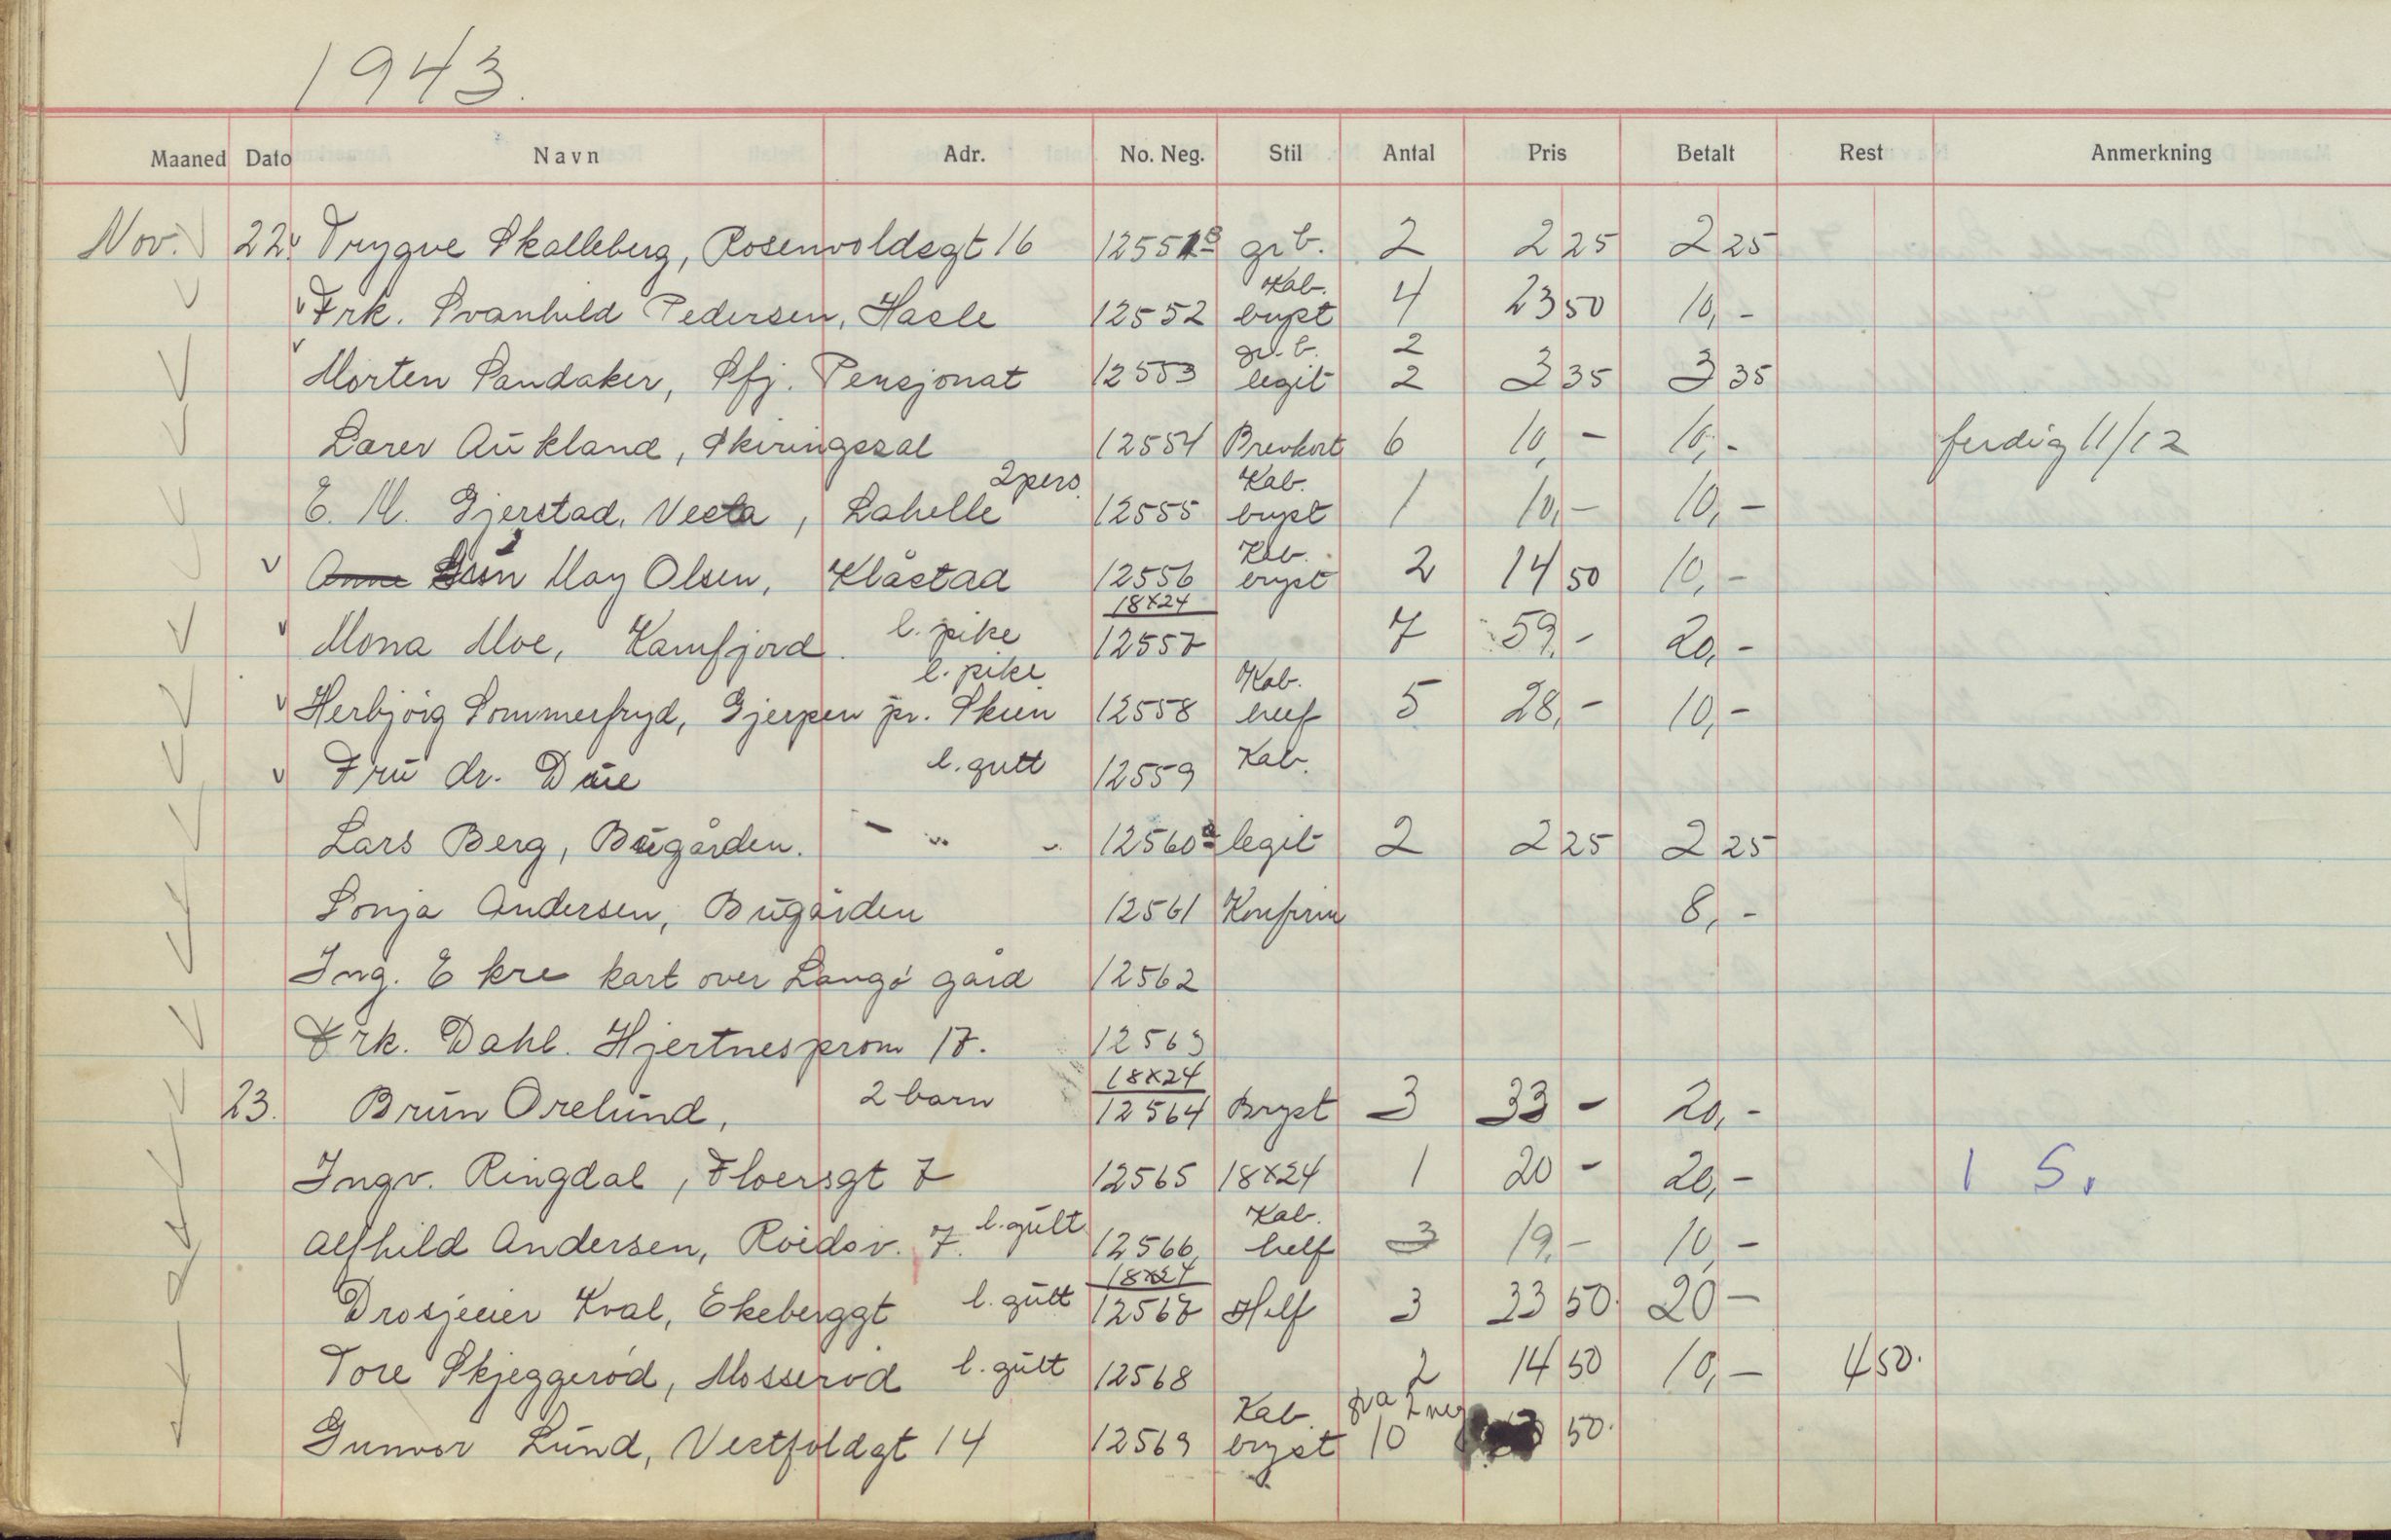 1943.
Maaned Dato Navn Adr. No. Neg. Stil Antal Pris Betalt Rest Anmerkning
Nov. 22. Trygve Skalleberg, Rosenvoldsgt 16 12551 gr b. 2 2 25 2 25
Frk. Svanhild Pedersen, Hasle 12552 Kab. bryst 4 23 50 10,-
Morten Sandaker, Sfj. Pensjonat 12553 gr. b. 2 legit 2 3 35 3 35
Larev Aukland, Skiringssal 12554 Brevkort 6 10,- 10,- ferdig 11/12
E. M. Gjerstad, Vesta, Lahelle 2 pers. 12555 Kab. bryst 1 10,- 10,-
Anne Gun May Olsen, Klåstad 12556 Kab. bryst 2 14 50 10,-
Mona Moe, Kamfjord. l. pike 18x24 12557 7 59,- 20,-
Herbjörg Sommerfryd, Gjerpen pr. Skien l. pike 12558 Kab. helf 5 28,- 10,-
Frü dr. Daae l. gutt 12559 Kab.
Lars Berg, Bugården. - " - 12560a legit 2 2 25 2 25
Sonja Andersen, Bugården 12561 Konfirm 8,-
Ing. Ekre kart over Langö gård 12562
Frk. Dahl. Hjertnesprom 17. 12563
23. Brün Orelünd, 2 barn 18x24 12564 Bryst 3 33 - 20,-
Ingv. Ringdal, Floersgt 7 12565 18x24 1 20 - 20,- 1 S.
Alfhild Andersen, Roidsv. 7. l. gütt 12566 Kab. helf 3 19,- 10,-
Drosjeeier Kval, Ekeberggt l. gütt 18x24 12567 Helf 3 33 50. 20 -
Tore Skjeggeröd, Mosseröd l. gütt 12568 2 14 50 10,- 4 50.
Gunvor Lünd, Vestfoldgt 14 12569 Kab. bryst fra 2 neg 10 50.